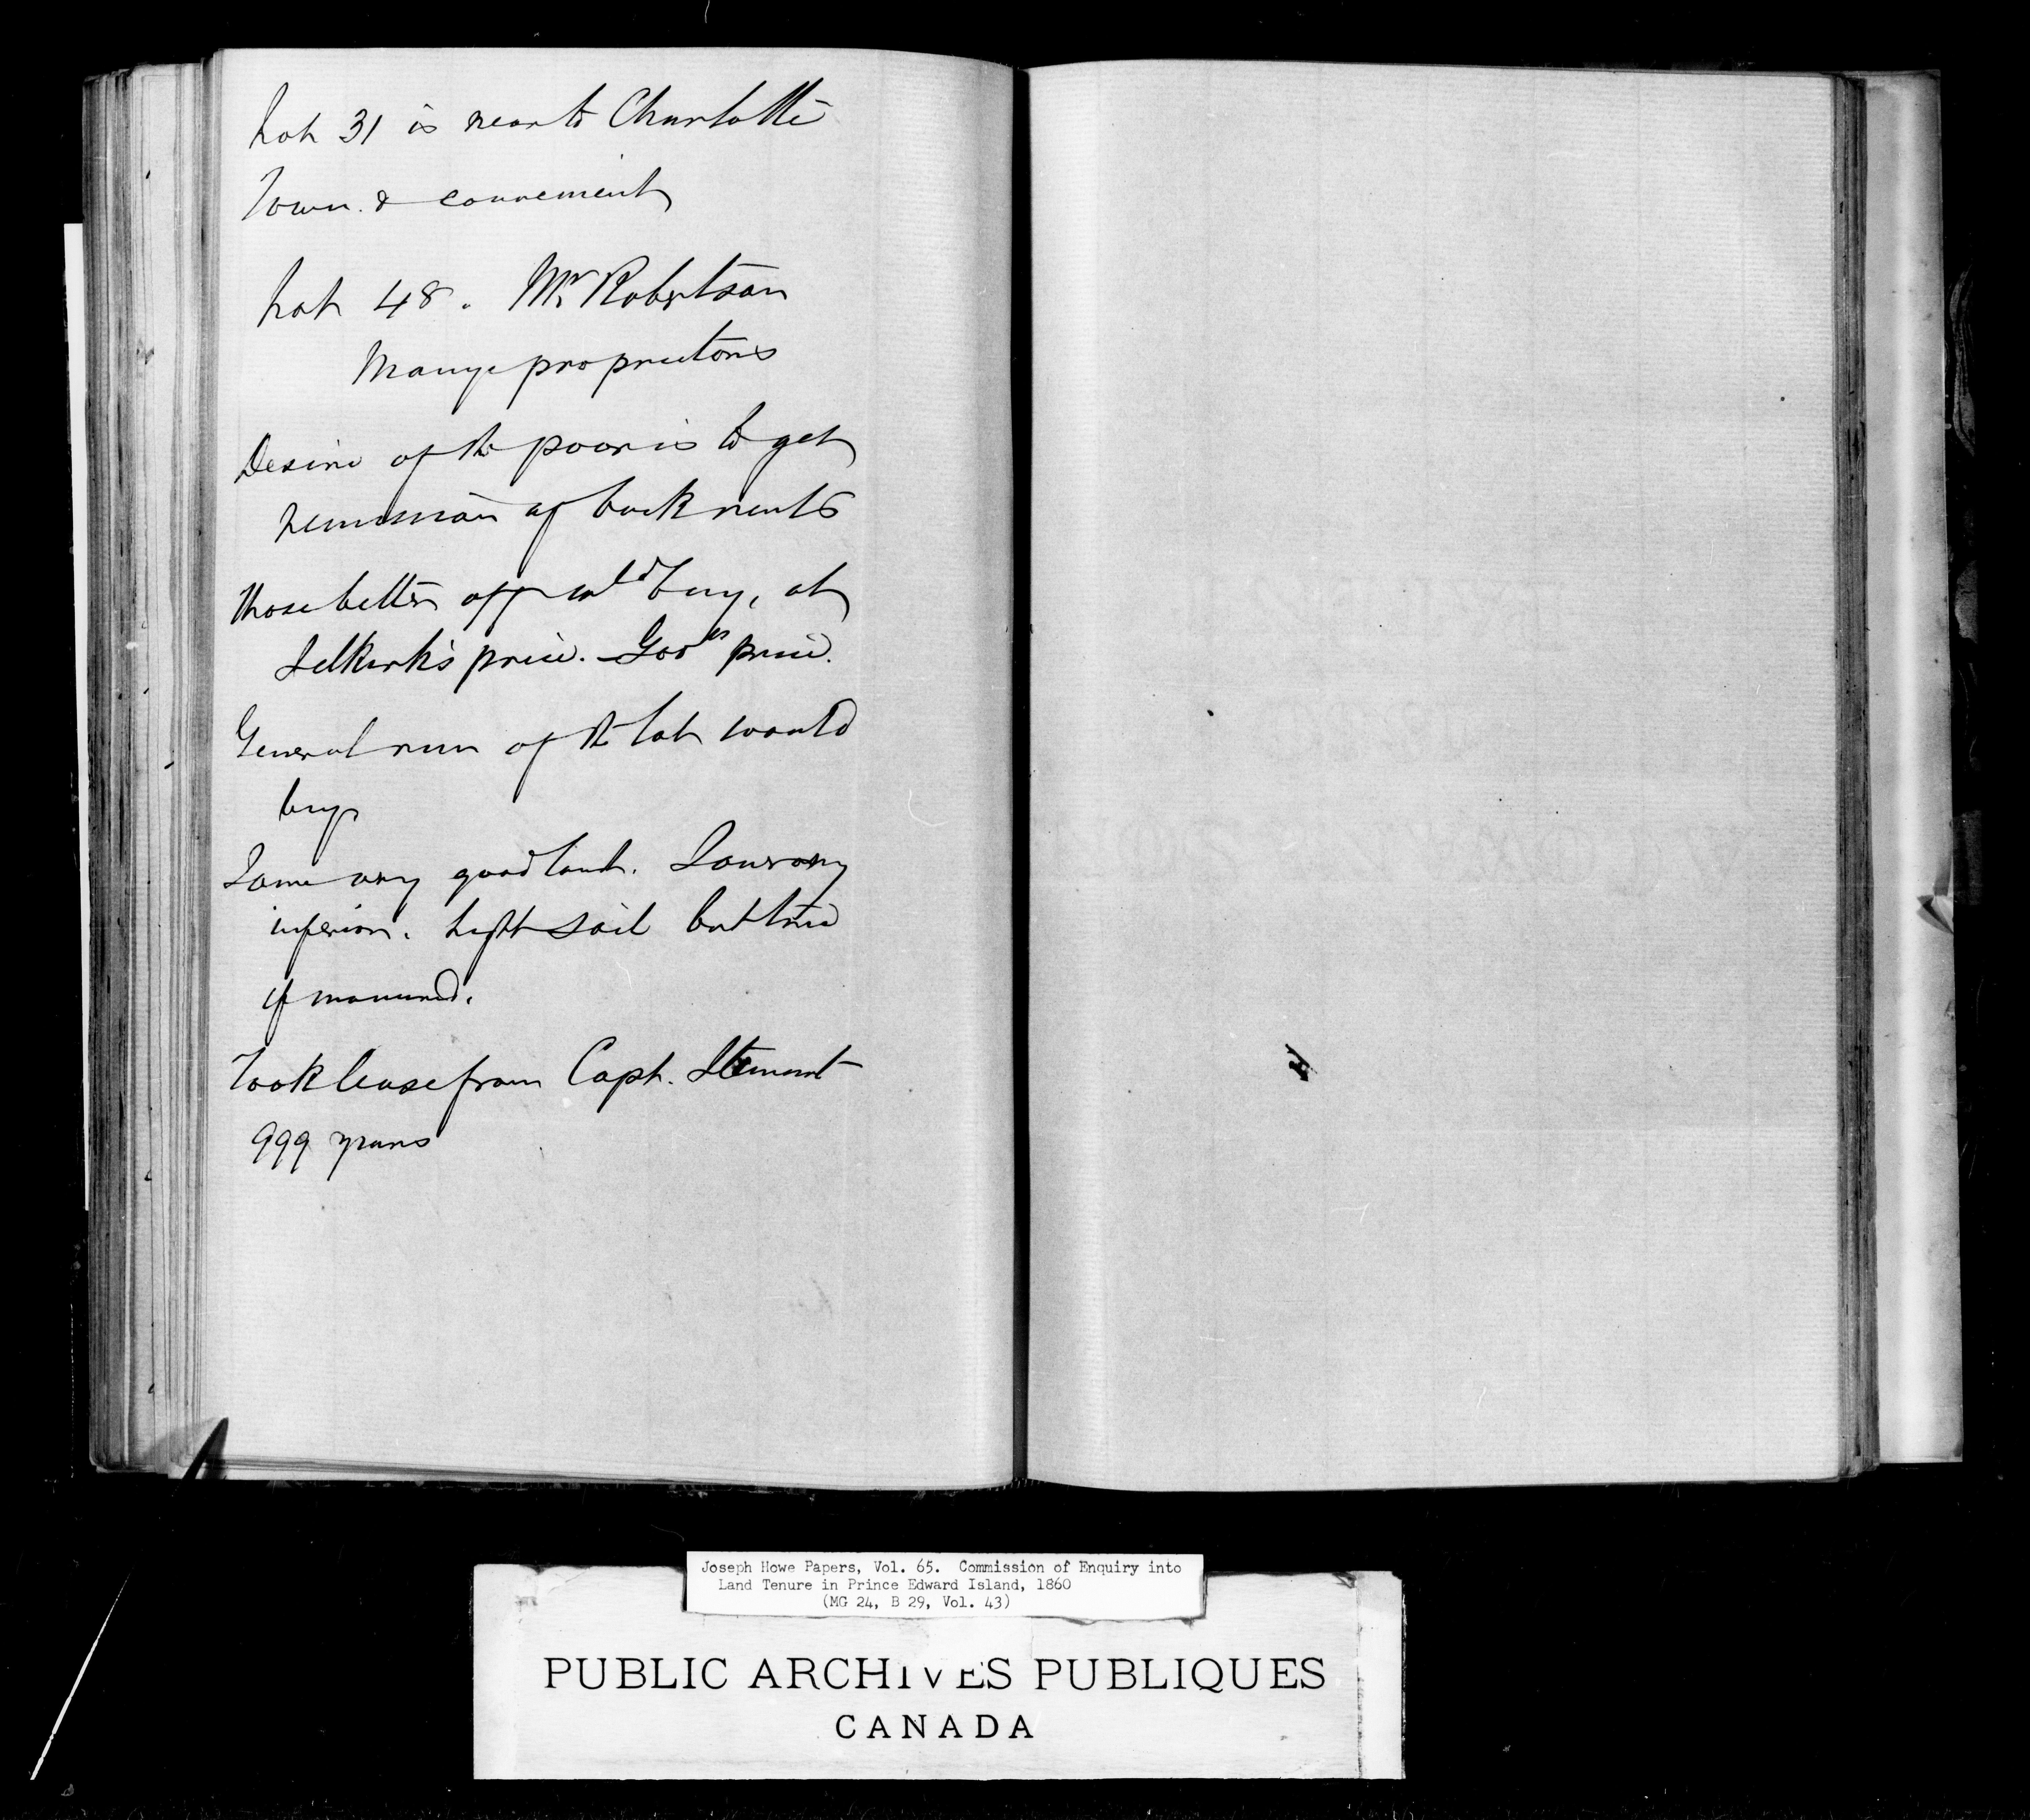 Lot 31 is near to Charlotte
Town. & convenient
Lot 48. Mr Robertson
Many proprietors
Desire of the poor is to get
remission of back rents
Those better off wld buy, at
Selkirk's price. - Govts price.
General run of the lot would
buy
Some very good land. Some very
inferior. Light soil but
if manured.
Took lease from Capt. Stewart
999 years
Joseph Howe Papers, Vol. 65. Commission of Enquiry into
Land Tenure in Prince Edward Island, 1860
(MG 24, B 29, Vol. 43)
PUBLIC ARCHIVES PUBLIQUES
CANADA